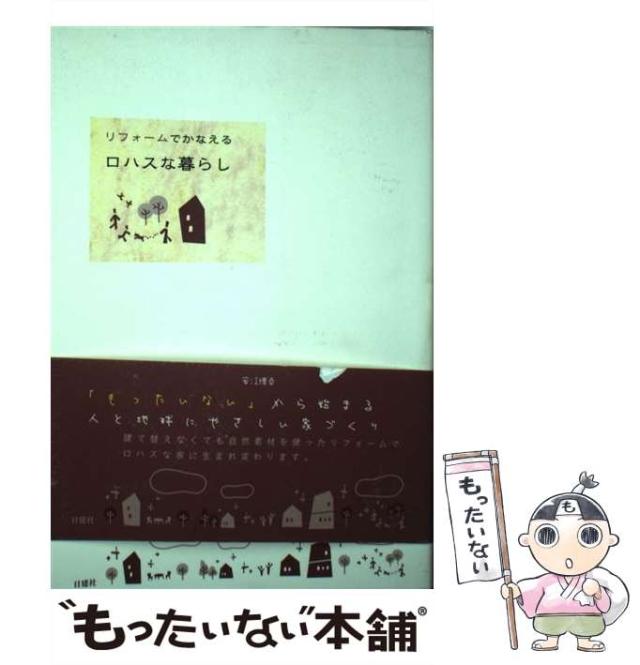 リフォームでかなえる
ロハスな暮らし
「もったいない」から始まる
人と地球にやさしい家づくり
建て替えなくても自然素材を使ったリフォームで
ロハスな家に生まれ変わります。
日経社
日経社
も
もったいない
“もったいない”本舗®